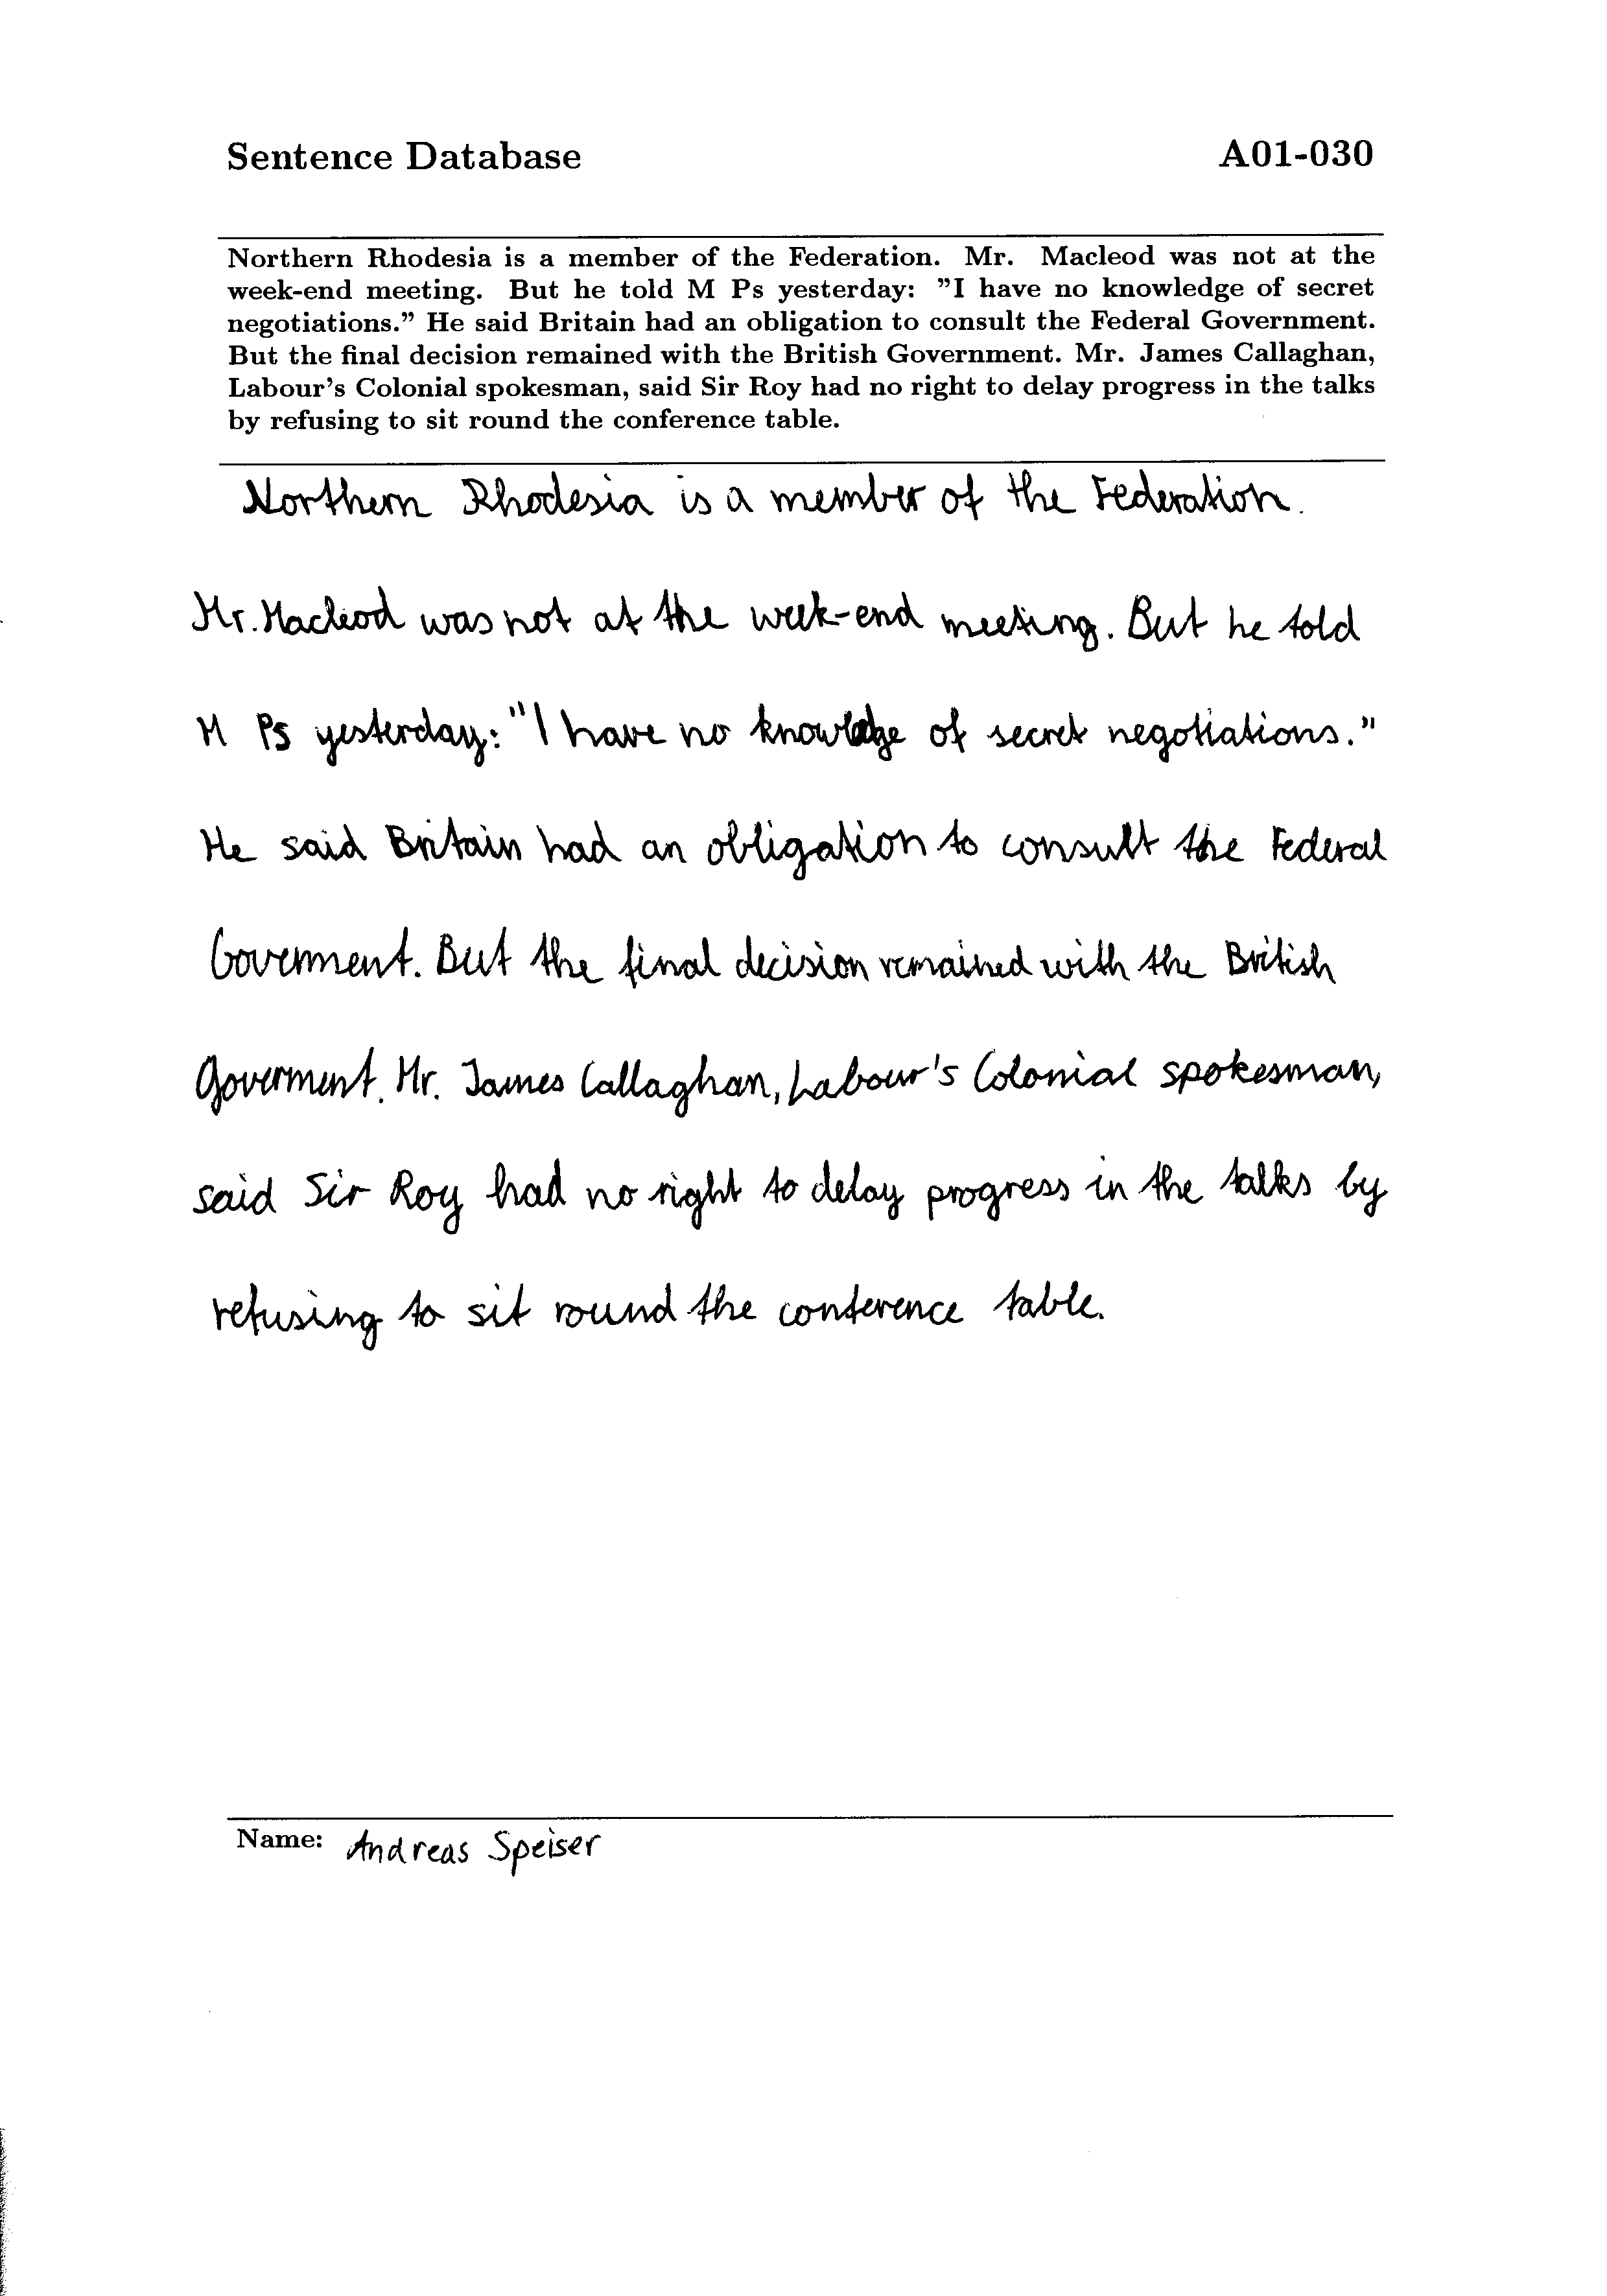 Sentence Database A01-030
Northern Rhodesia is a member of the Federation. Mr. Macleod was not at the
week-end meeting. But he told M Ps yesterday: "I have no knowledge of secret
negotiations." He said Britain had an obligation to consult the Federal Government.
But the final decision remained with the British Government. Mr. James Callaghan,
Labour's Colonial spokesman, said Sir Roy had no right to delay progress in the talks
by refusing to sit round the conference table.
Northern Rhodesia is a member of the Federation.
Mr. Macleod was not at the week-end meeting. But he told
M Ps yesterday: "I have no knowledge of secret negotiations."
He said Britain had an obligation to consult the Federal
Goverment. But the final decision remained with the British
Goverment. Mr. James Callaghan, Labour's Colonial spokesman,
said Sir Roy had no right to delay progress in the talks by
refusing to sit round the conference table.
Name: Andreas Speiser